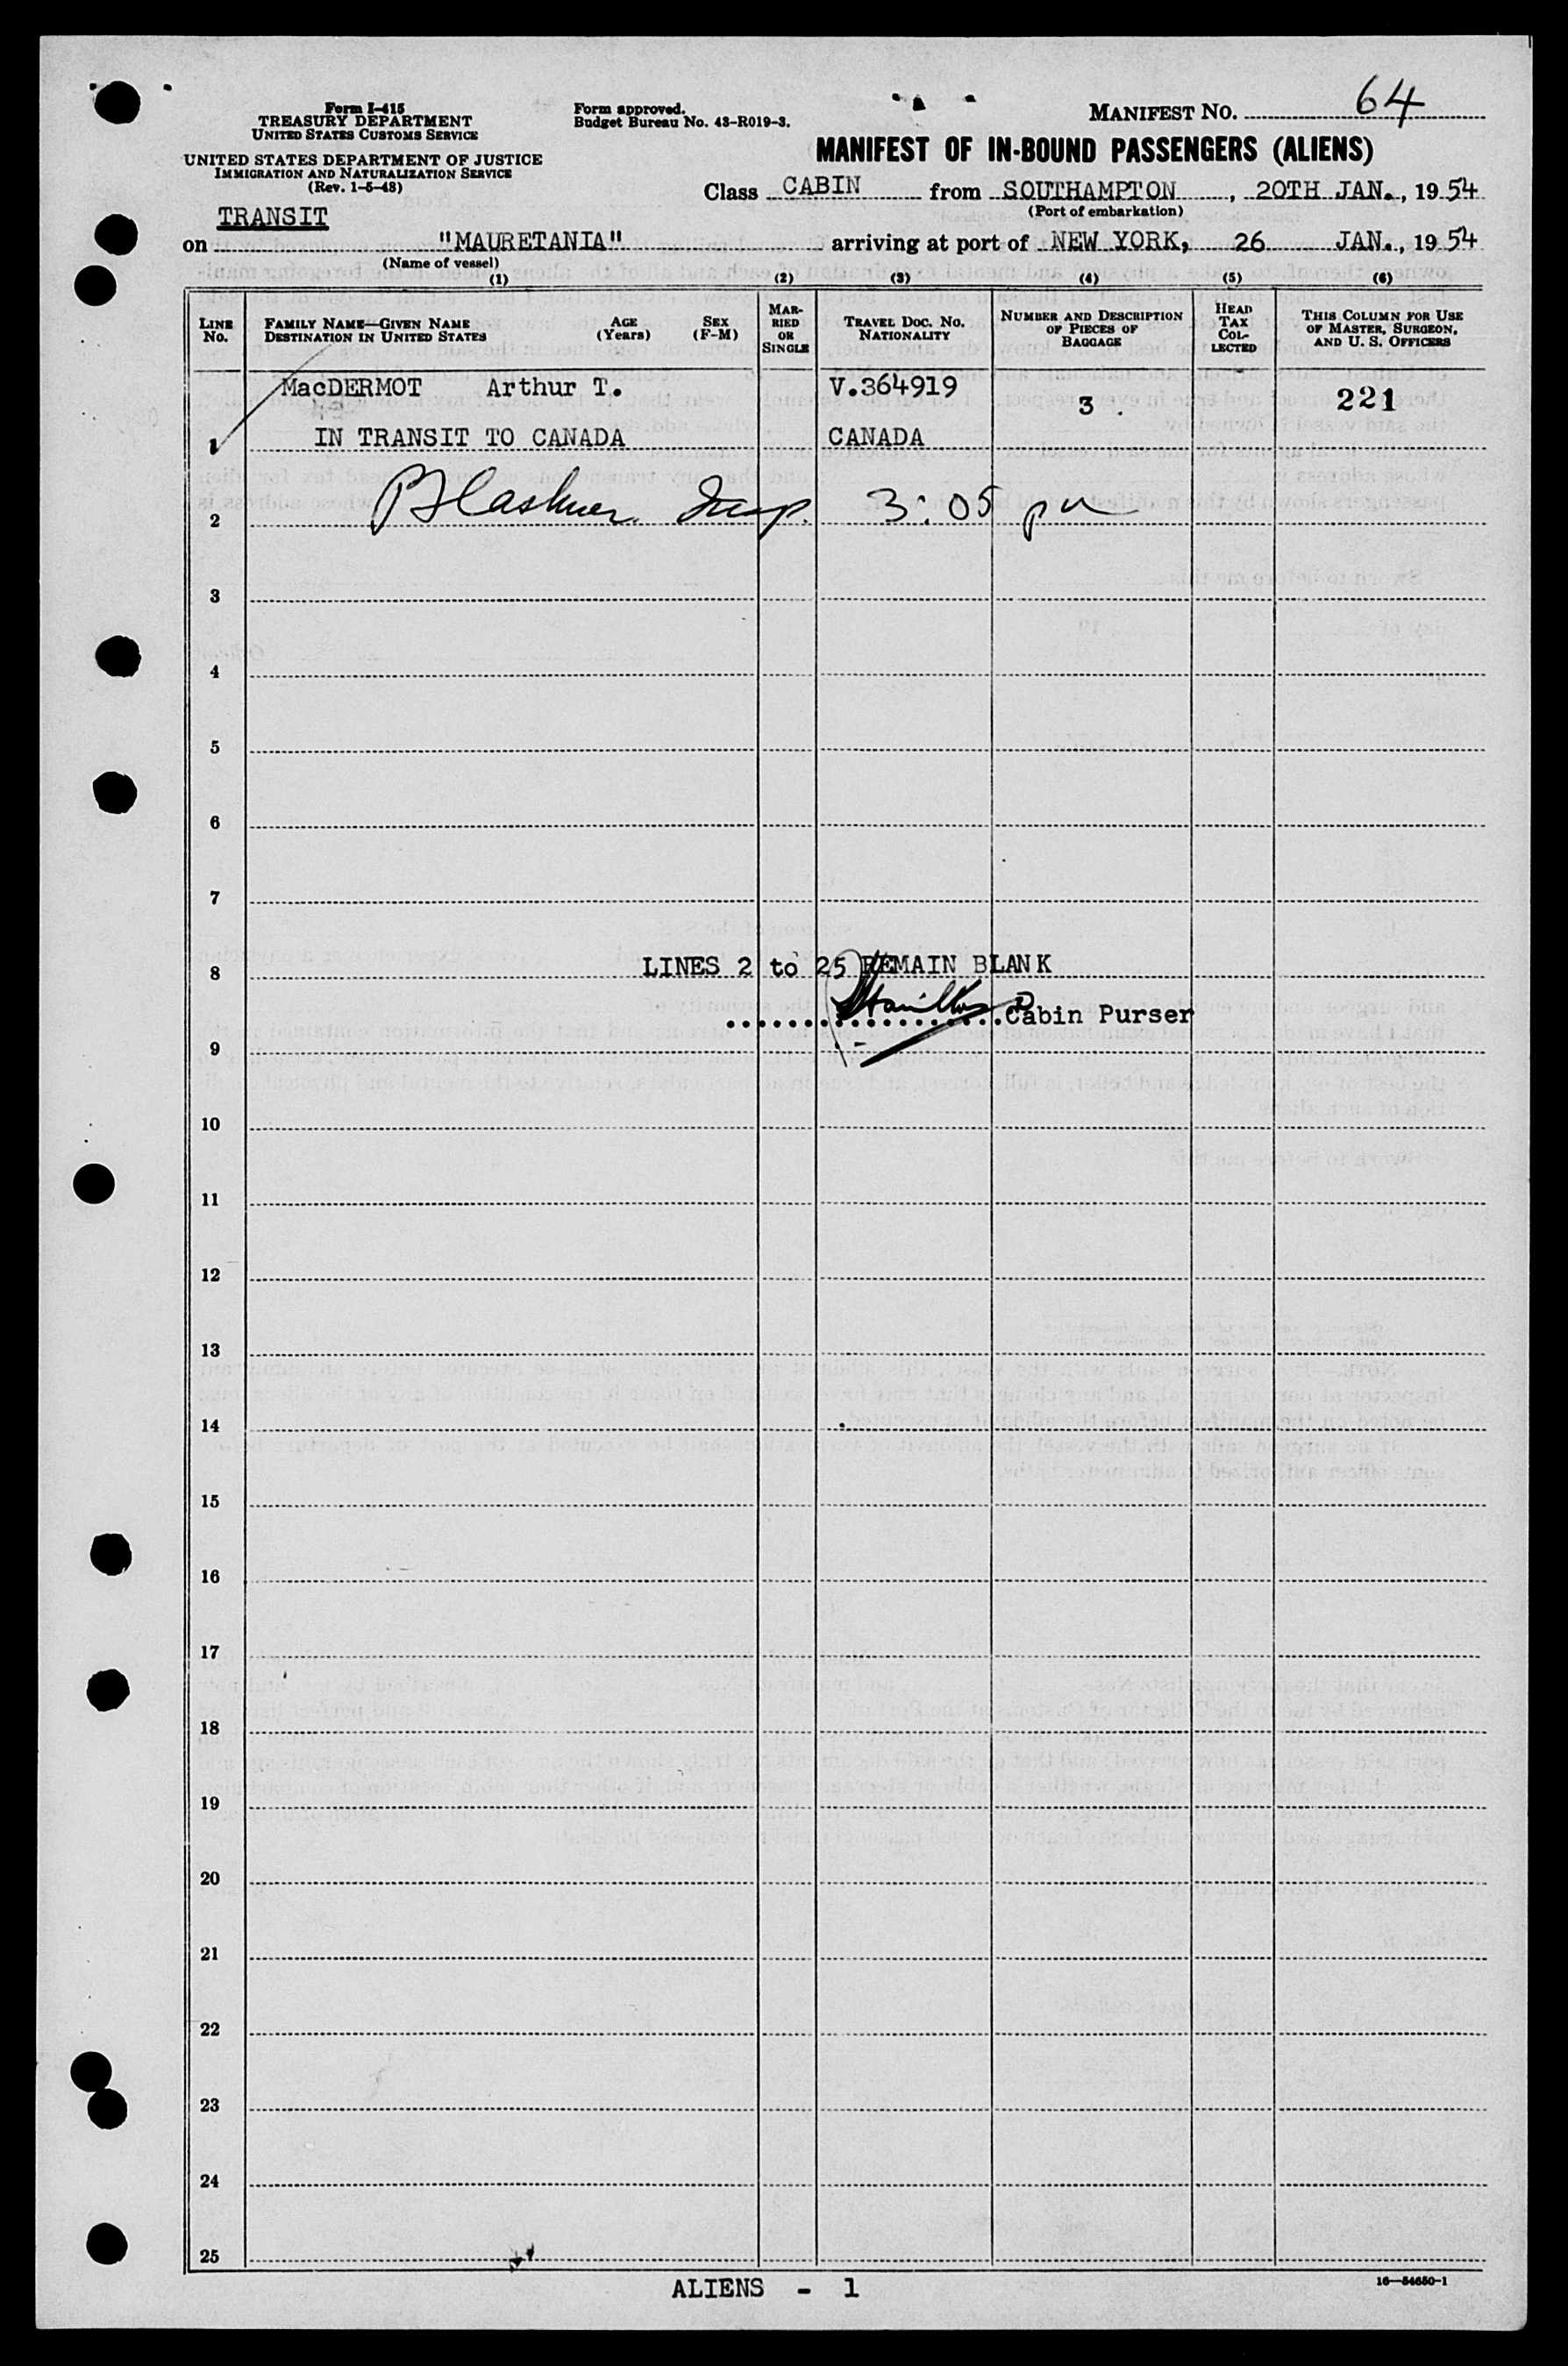 Form I-415
TREASURY DEPARTMENT
UNITED STATES CUSTOMS SERVICE
UNITED STATES DEPARTMENT OF JUSTICE
IMMIGRATION AND NATURALIZATION SERVICE
(Rev. 1-5-48)
Form approved.
Budget Bureau No. 43-R019-3.
MANIFEST NO. 64
MANIFEST OF IN-BOUND PASSENGERS (ALIENS)
Class CABIN from SOUTHAMPTON, 20TH JAN., 1954
(Port of embarkation)
TRANSIT
on "MAURETANIA" arriving at port of NEW YORK, 26 JAN., 1954
(Name of vessel)
(1) (2) (3) (4) (5) (6)
LINE No. FAMILY NAME—GIVEN NAME DESTINATION IN UNITED STATES AGE (Years) SEX (F-M) MARRIED OR SINGLE TRAVEL DOC. NO. NATIONALITY NUMBER AND DESCRIPTION OF PIECES OF BAGGAGE HEAD TAX COLLECTED THIS COLUMN FOR USE OF MASTER, SURGEON, AND U. S. OFFICERS
MacDERMOT Arthur T. V.364919 3 221
1 IN TRANSIT TO CANADA CANADA
2 Insp. 3:05 pm
3
4
5
6
7
8 LINES 2 to 25 REMAIN BLANK
Cabin Purser
9
10
11
12
13
14
15
16
17
18
19
20
21
22
23
24
25
ALIENS - 1
16—54650-1